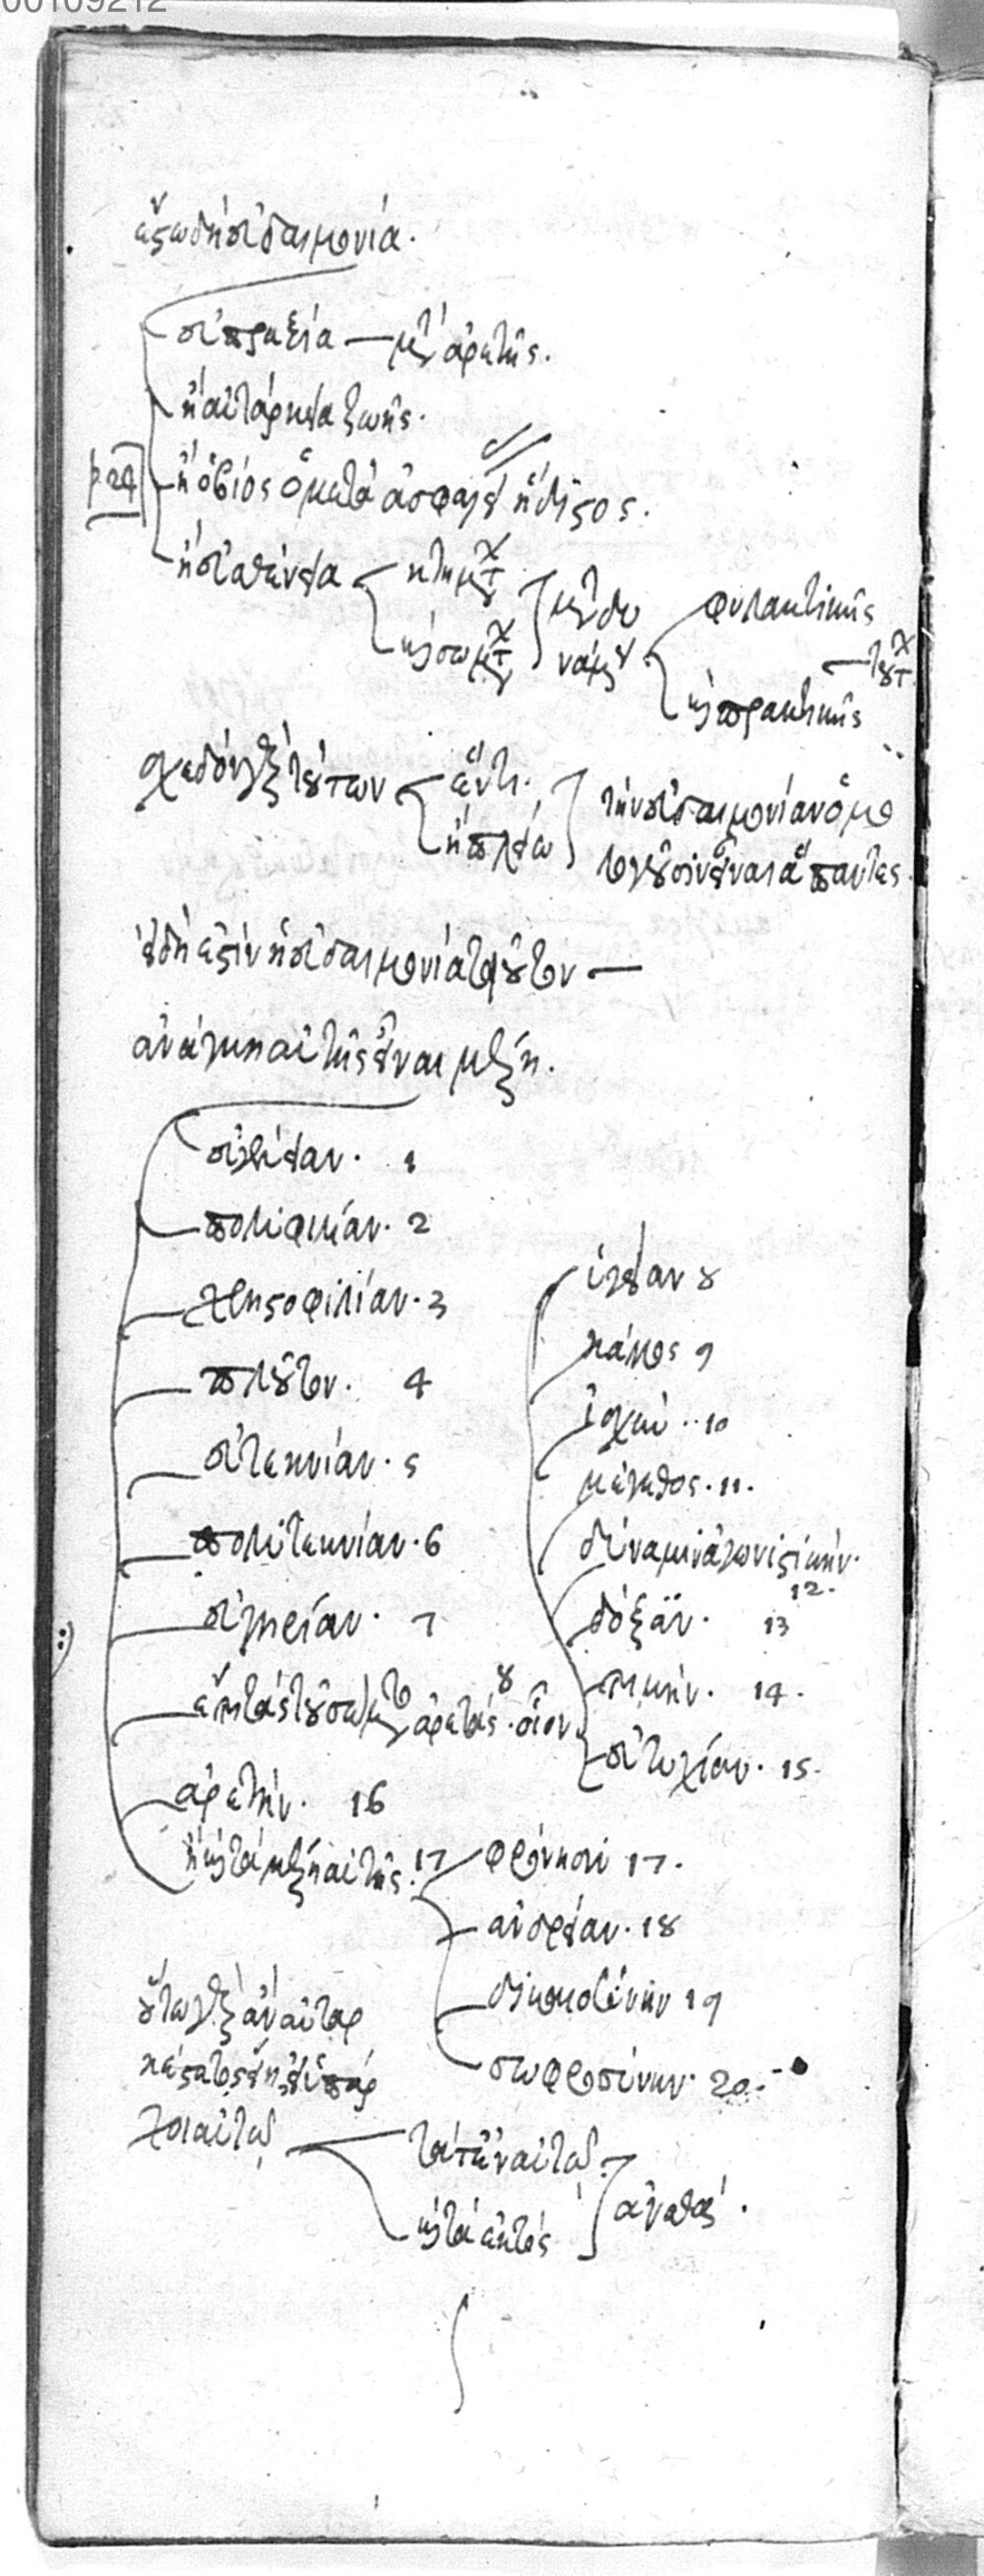 00109212
ἔστω δὴ εὐδαιμονία.
εὐπραξία — μετ' ἀρετῆς.
ἢ αὐτάρκεια ζωῆς.
p. 24 ἢ ὁ βίος ὁ μετὰ ἀσφαλείας ἥδιστος.
ἢ εὐθένεια κτημάτων
καὶ σωμάτων
μετὰ δυ
νάμεως
φυλακτικῆς
καὶ πρακτικῆς
τούτων
σχεδὸν γὰρ τούτων ἕν τι
ἢ πλείω
τὴν εὐδαιμονίαν ὁμο
λογοῦσιν εἶναι ἅπαντες.
εἰ δή ἐστιν ἡ εὐδαιμονία τοιοῦτον —
ἀνάγκη αὐτῆς εἶναι μέρη.
εὐγένειαν. 1
πολυφιλίαν. 2
χρηστοφιλίαν. 3
πλοῦτον. 4
εὐτεκνίαν. 5
πολυτεκνίαν. 6
εὐγηρίαν. 7
ἔτι τὰς τοῦ σώματος ἀρετάς. οἷον 8
ὑγείαν 8
κάλλος 9
ἰσχύν 10
μέγεθος. 11.
δύναμιν ἀγωνιστικήν.
12.
δόξαν. 13
τιμήν. 14.
εὐτυχίαν. 15.
ἀρετήν. 16
ἢ καὶ τὰ μέρη αὐτῆς. 17
φρόνησιν 17.
ἀνδρείαν. 18
δικαιοσύνην 19
σωφροσύνην. 20.
οὕτω γὰρ ἂν αὐταρ
κέστατος εἴη, εἰ ὑπάρ
χοι αὐτῷ
τά τ' ἐν αὐτῷ
καὶ τὰ ἐκτός
ἀγαθά.